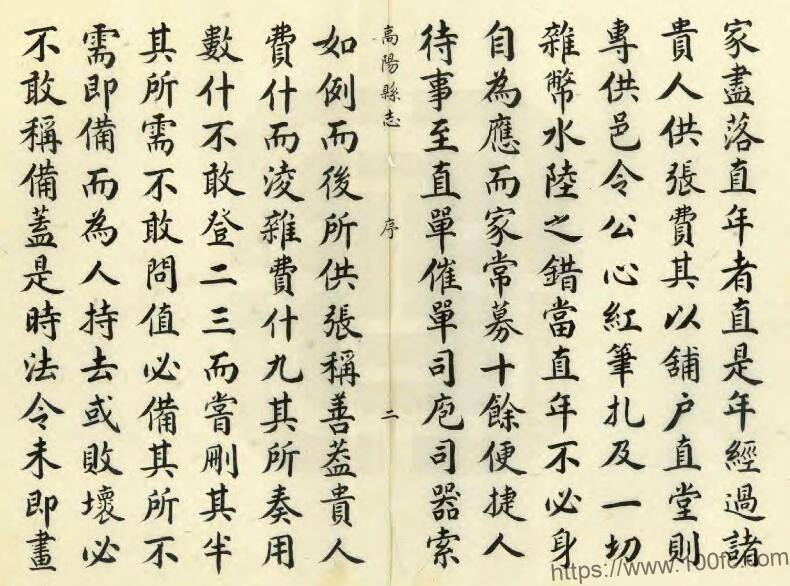 家盡落直年者直是年經過諸
貴人供張費其以舖户直堂則
專供邑令公心紅筆扎及一切
雜幣水陸之錯當直年不必身
自為應而家常募十餘便捷人
待事至直單催單司庖司器索
高陽縣志 序 二
如例而後所供張稱善葢貴人
費什而淩雜費什九其所奏用
數什不敢登二三而嘗刪其半
其所需不敢問值必備其所不
需即備而為人持去或敗壞必
不敢稱備蓋是時法令未即畫
https://www.100fc.com